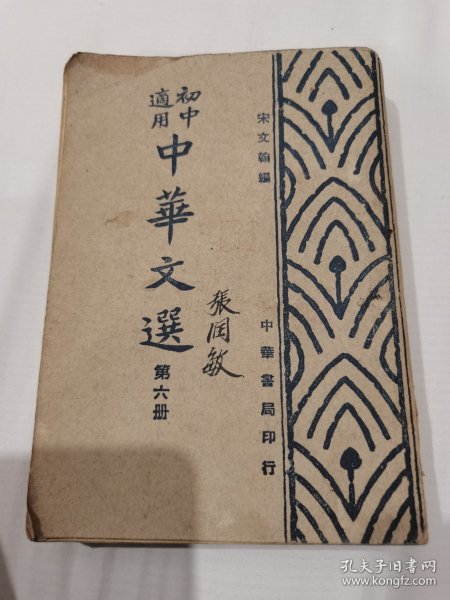 宋文翰編
初中
適用
中華文選
第六册
張润敏
中華書局印行
孔夫子旧书网
www.kongfz.com